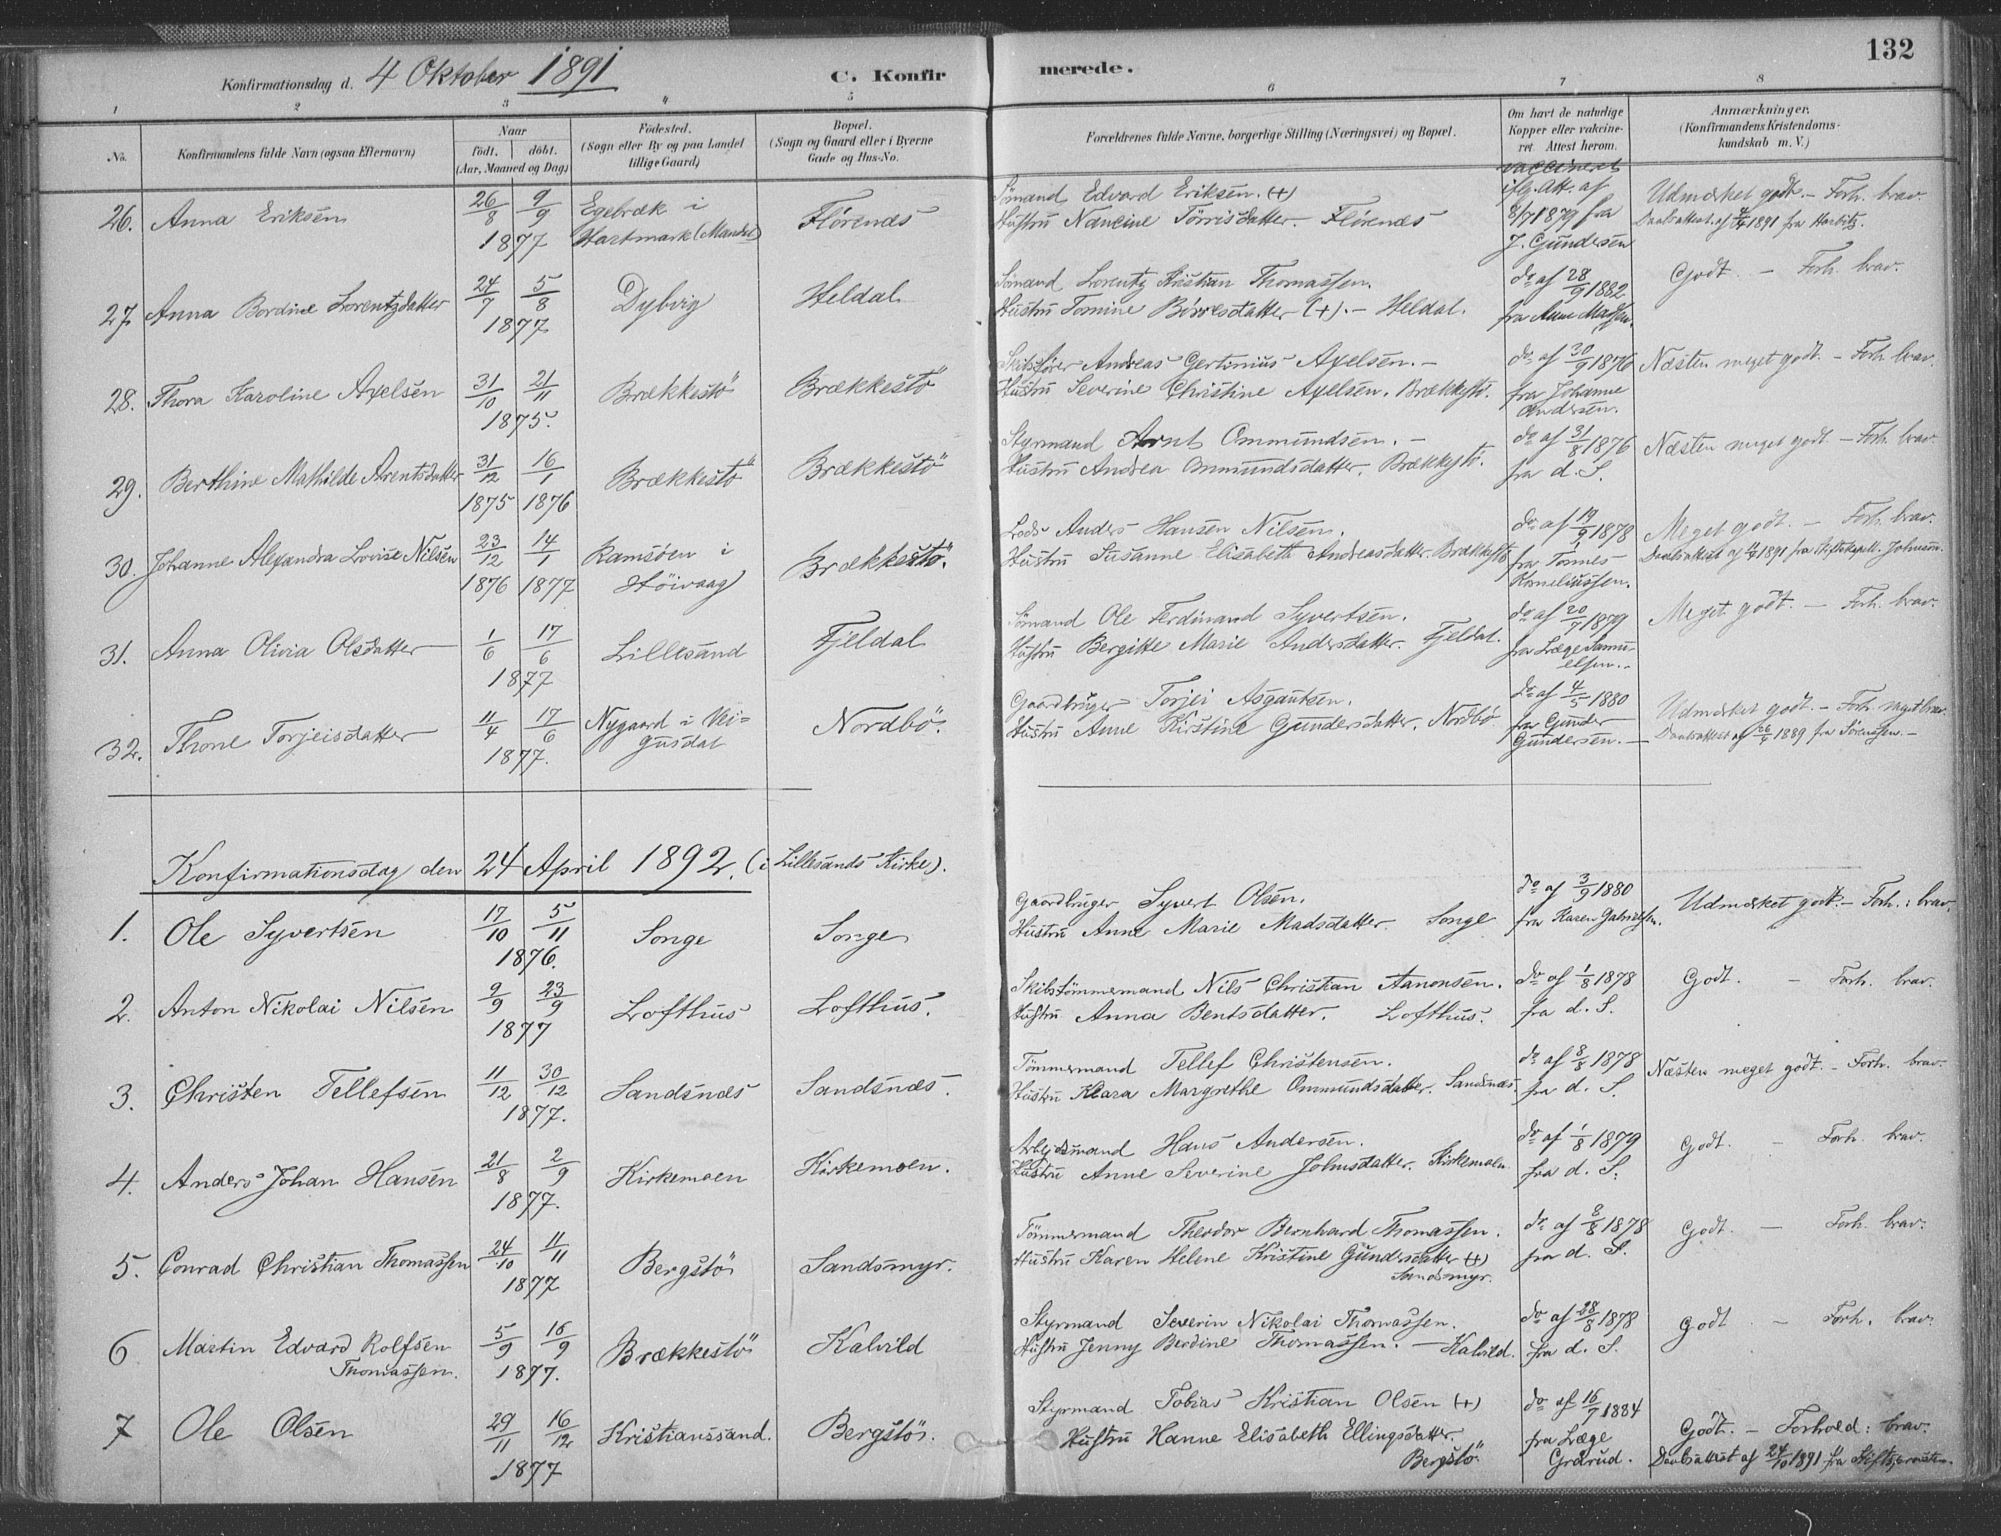 132
Konfirmationsdag d. 4 Oktober 1891
C. Konfirmerede.
1 2 3 4 5 6 7 8
No.
Konfirmandens fulde Navn (ogsaa Efternavn)
Naar
födt. döbt.
(Aar, Maaned og Dag)
Födested.
(Sogn eller By og paa Landet
tillige Gaard)
Bopæl.
(Sogn og Gaard eller i Byerne
Gade og Hus-No.
Forældrenes fulde Navne, borgerlige Stilling (Næringsvei) og Bopæl.
Om havt de naturlige
Kopper eller vakcine-
ret. Attest herom.
Anmærkninger.
(Konfirmandens Kristendoms-
kundskab m. V.)
26. Anna Eriksen
26/8 9/9
1877
Egebræk i
Hartmark (Mandal)
Flörenæs
Sömand Edvard Eriksen. (+)
Hustru Nancine Törrisdatter. Flörenæs
vaccineret
iflg. Att. af
8/7 1879 fra
J. Gundersen
Udmærket godt. – Forh. brav.
Daabsattest af 1891 fra Harbitz.
27. Anna Bordine Lorentzdatter
24/7 5/8
1877
Dybvig
Heldal
Sömand Lorentz Kristian Thomassen.
Hustru Tomine Börresdatter (+). – Heldal.
do af 28/9 1882
fra Anne Madsen.
Godt. – Forh. brav.
28. Thora Karoline Axelsen
31/10 21/11
1875.
Brækkestö
Brækkestö
Skibsförer Andreas Gertinius Axelsen. –
Hustru Severine Christine Axelsen. Brækkestö.
do af 30/9 1876
fra Johanne
Andersen.
Næsten meget godt. – Forh. brav.
29. Berthine Mathilde Arentsdatter
31/12 16/1
1875 1876
Brækkestö
Brækkestö
Styrmand Arnt Ommundsen. –
Hustru Andrea Ommundsdatter. Brækkestö.
do af 31/8 1876
fra d. S.
Næsten meget godt – Forh. brav.
30. Johanne Alexandra Lovise Nilsen
23/12 14/1
1876 1877
Ramsöen i
Höivaag
Brækkestö.
Lods Anders Hansen Nilsen.
Hustru Susanne Elisabeth Andreasdatter. Brækkestö
do af 19/9 1878
fra Tönnes
Korneliussen.
Meget godt. – Forh. brav.
Daabsattest af 1891 fra Stiftskapell. Johnsen.
31. Anna Olivia Olsdatter
1/6 17/6
1877
Lillesand
Fjeldal
Sömand Ole Ferdinand Syvertsen.
Hustru Bergitte Marie Andersdatter. Fjeldal.
do af 20/7 1879
fra Læge Samu-
elsen.
Meget godt. – Forh. brav.
32. Thone Torjeisdatter
11/4 17/6
1877.
Nygaard i Vei-
gusdal
Nordbö.
Gaardbruger Torjei Asgautsen.
Hustru Anne Kirstine Gundersdatter. Nordbö
do af 4/5 1880
fra Gunder
Gundersen. –
Udmærket godt. – Forh. meget brav.
Daabsattest af 26/4 1889 fra Sörenssen. –
Konfirmationsdag den 24 April 1892. (i Lillesands Kirke).
1. Ole Syvertsen
17/10 5/11
1876.
Songe
Songe
Gaardbruger Syvert Olsen.
Hustru Anne Marie Madsdatter. Songe
do af 3/9 1880
fra Karen Gabrielsen.
Udmærket godt. – Forh.: brav.
2. Anton Nikolai Nilsen
9/9 23/9
1877
Lofthus
Lofthus.
Skibstömmermand Nils Christian Aanonsen.
Hustru Anna Bentsdatter. Lofthus.
do af 1/8 1878
fra d. S.
Godt. – Forh. brav.
3. Christen Tellefsen
11/12 30/12
1877.
Sandsnæs
Sandsnæs.
Tömmermand Tellef Christensen.
Hustru Klara Margrethe Ommundsdatter. Sandsnæs.
do af 8/8 1878
fra d. S.
Næsten meget godt. – Forh. brav.
4. Anders Johan Hansen
21/8 2/9
1877.
Kirkemoen
Kirkemoen.
Arbeidsmand Hans Andersen.
Hustru Anne Severine Johnsdatter. Kirkemoen.
do af 1/8 1879
fra d. S.
Godt. – Forh. brav.
5. Conrad Christian Thomassen
24/10 11/11
1877
Bergstö
Sandsmyr.
Tömmermand Theodor Bernhard Thomassen.
Hustru Karen Helene Kristine Gundersdatter (+)
Sandsmyr.
do af 8/8 1878
fra d. S.
Godt. – Forh. brav.
6 Martin Edvard Rolfsen
Thomassen.
5/9 16/9
1877.
Brækkestö
Kalvild
Styrmand Severin Nikolai Thomassen.
Hustru Jenny Berdine Thomassen. – Kalvild.
do af 28/8 1878
fra d. S.
Godt. – Forh. brav.
7 Ole Olsen
29/11 16/12
1877
Kristianssand.
Bergstö.
Styrmand Tobias Kristian Olsen (+)
Hustru Hanne Elisabeth Ellingsdatter.
Bergstö
do af 16/7 1884
fra Læge
Grörud.
Godt. – Forhold: brav.
Daabsattest af 24/10 1891 fra Stiftsprovsten.